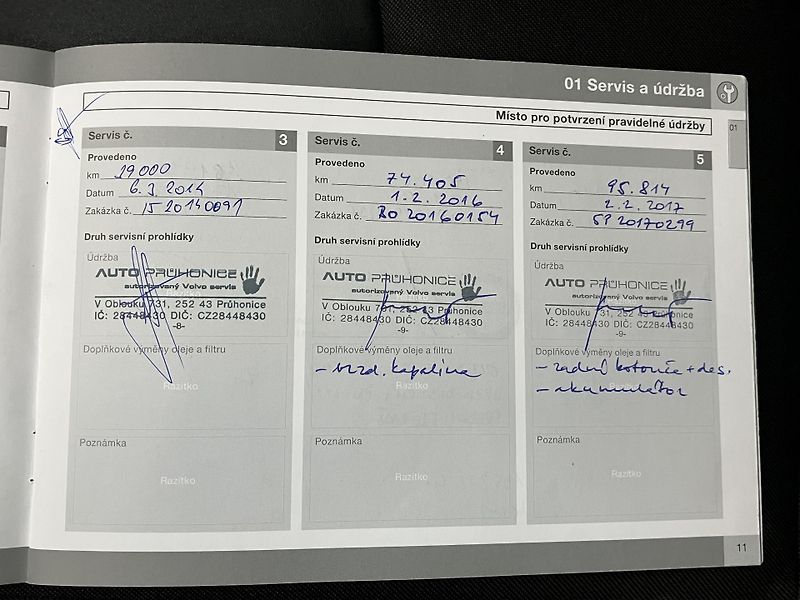 01 Servis a údržba
Místo pro potvrzení pravidelné údržby
01
Servis č. 3
Provedeno
km 19000
Datum 6.3.2014
Zakázka č. IS20140091
Druh servisní prohlídky
Údržba
AUTO PRŮHONICE
autorizovaný Volvo servis
V Oblouku 731, 252 43 Průhonice
IČ: 28448430 DIČ: CZ28448430
-8-
Doplňkové výměny oleje a filtru
Razítko
Poznámka
Razítko
Servis č. 4
Provedeno
km 74.405
Datum 1.2.2016
Zakázka č. RO20160154
Druh servisní prohlídky
Údržba
AUTO PRŮHONICE
autorizovaný Volvo servis
V Oblouku 731, 252 43 Průhonice
IČ: 28448430 DIČ: CZ28448430
-9-
Doplňkové výměny oleje a filtru
- brzd. kapalina
Razítko
Poznámka
Razítko
Servis č. 5
Provedeno
km 95.814
Datum 2.2.2017
Zakázka č. SP20170299
Druh servisní prohlídky
Údržba
AUTO PRŮHONICE
autorizovaný Volvo servis
V Oblouku 731, 252 43 Průhonice
IČ: 28448430 DIČ: CZ28448430
-9-
Doplňkové výměny oleje a filtru
- zadní kotouče + des.
- akumulátor
Razítko
Poznámka
Razítko
11